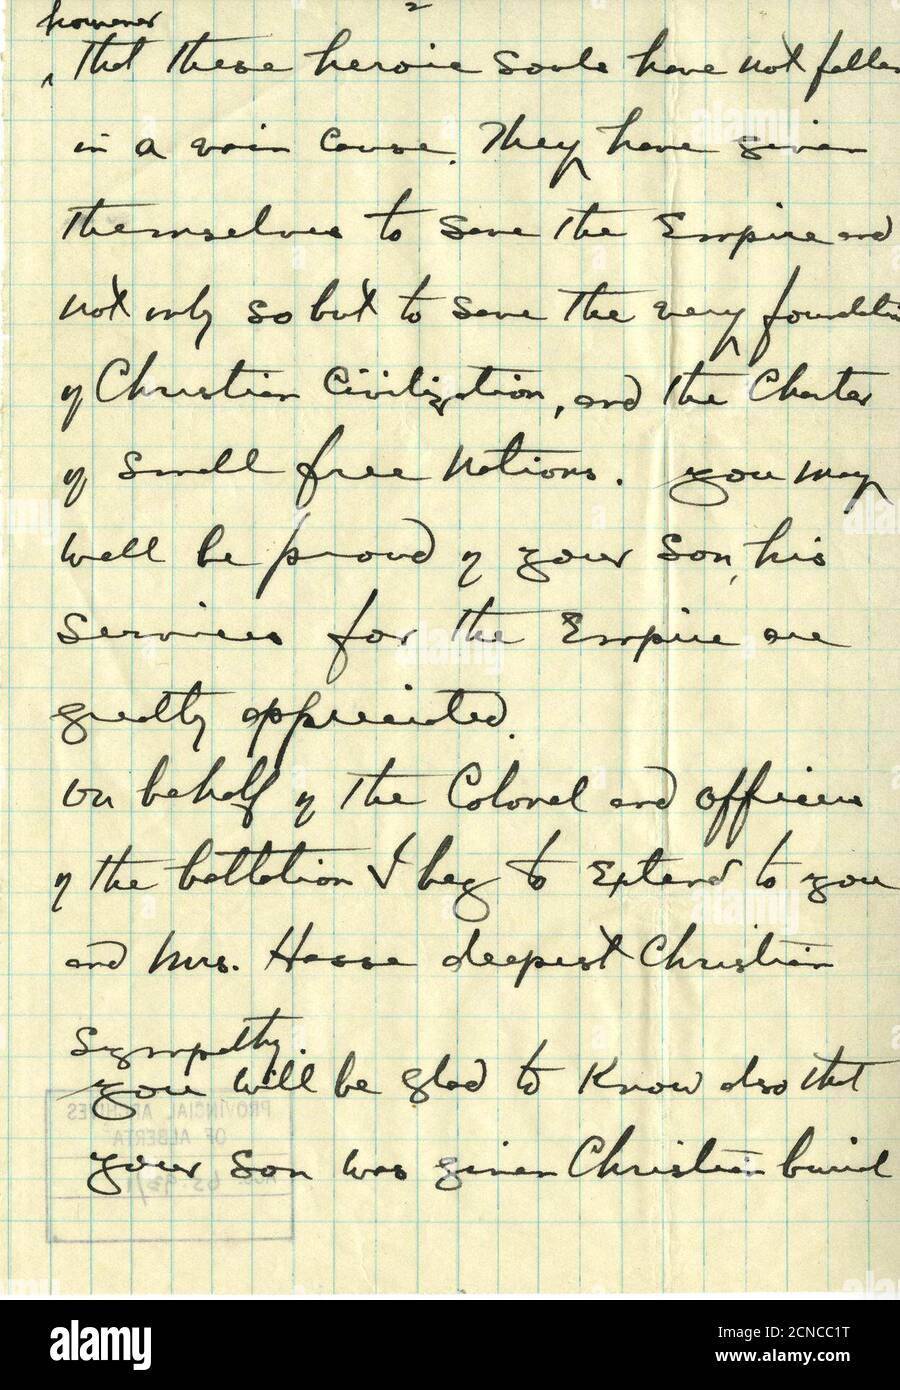 2
however
‸ that these heroic souls have not fallen
in a vain cause. They have given
themselves to save the Empire and
not only so but to save the very foundation
of Christian Civilization, and the Charter
of small free Nations. you may
well be proud of your Son, his
Services for the Empire are
greatly appreciated.
On behalf of the Colonel and officers
of the battalion I beg to extend to you
and Mrs. Hasse deepest Christian
Sympathy.
you will be glad to know also that
your son was given Christian burial
PROVINCIAL ARCHIVES
OF ALBERTA
alamy
Image ID: 2CNCC1T
www.alamy.com